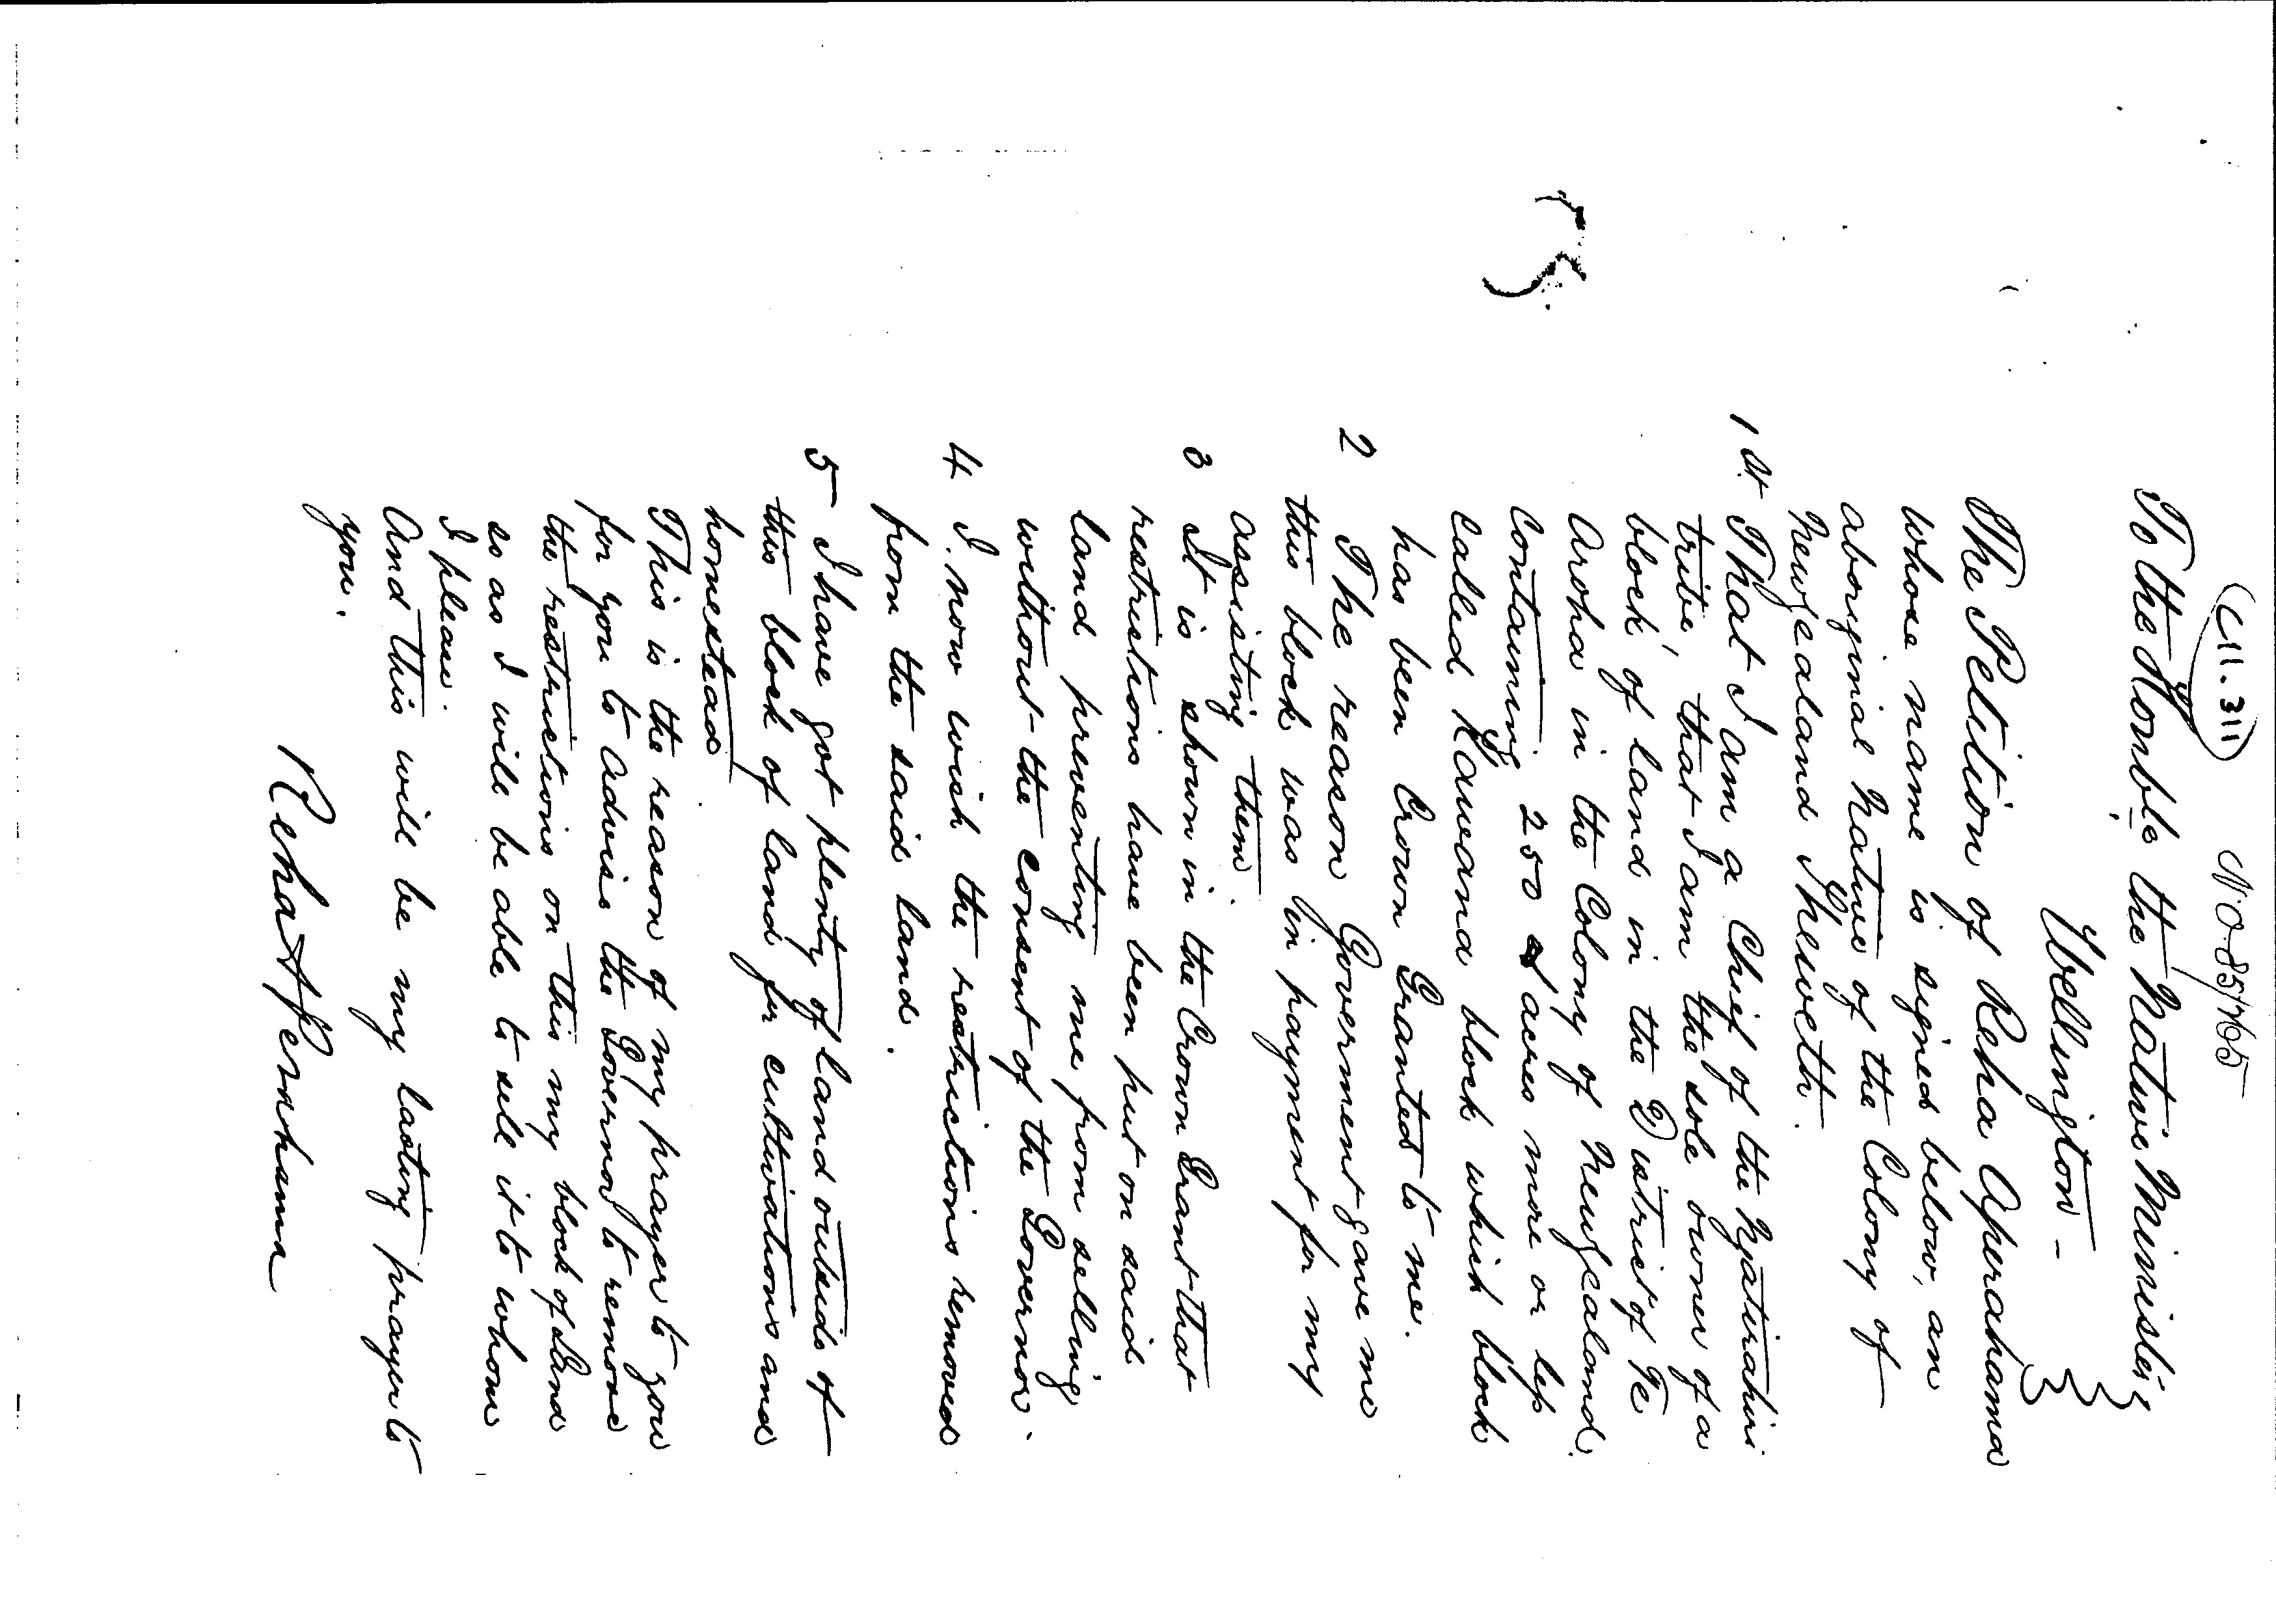 (11.311) No 85/765
To the Honble the Native Minister
Wellington -
The Petition of Reha Aperahama
whose name is signed below, an
aboriginal Native of the Colony of
New Zealand Sheweth.
1st That I am a Chief of the Ngatirahiri
tribe, that I am the sole owner of a
block of land in the District of Te
Aroha in the Colony of New Zealand.
Containing 250 acres more or less
Called Kaweana block which block
has been Crown Granted to me.
2 The reason Goverment gave me
this block was in payment for my
assisting them.
3 It is shown in the Crown Grant that
restrictions have been put on said
land preventing me from selling
without the consent of the Governor.
4 I now wish the restrictions removed
from the said land.
5 I have got plenty of land outside of
this block of land for cultivations and
homestead.
This is the reason of my prayer to you
for you to advise the Governor to remove
the restrictions on this my block of Land
so as I will be able to sell it to whom
I please.
And this will be my lasting prayer to
you.
Reha Aperahama